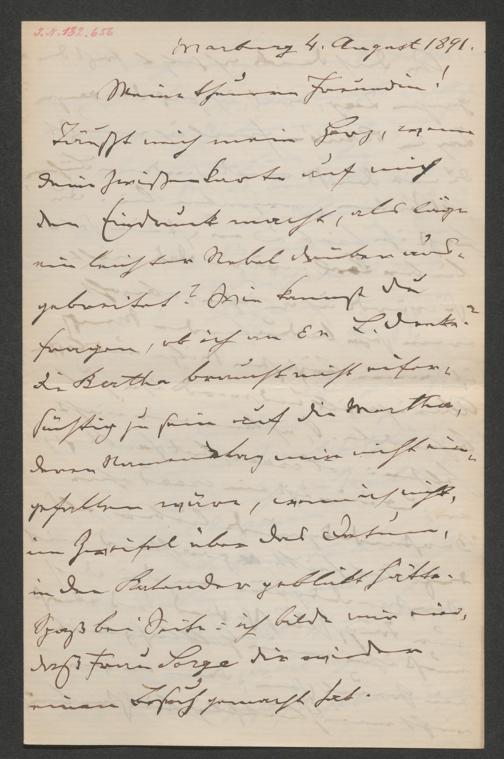 J.N. 132.656
Marburg 4. August 1891.
Meine theuere Freundin!
Täuscht mich mein Herz, wenn
deine Zwischenkarte auf mich
den Eindruck macht, als läge
ein leichter Nebel darüber aus-
gebreitet? Wie kannst du
fragen, ob ich an E L. denke?
Die Bertha braucht nicht eifer-
süchtig zu sein auf die Martha,
deren Namenstag mir nicht ein-
gefallen wäre, wenn ich nicht,
im Zweifel über das Datum,
in den Kalender geblickt hätte.
Spaß bei Seite: ich bilde mir ein,
daß Frau Sorge dir wieder
einen Besuch gemacht hat.